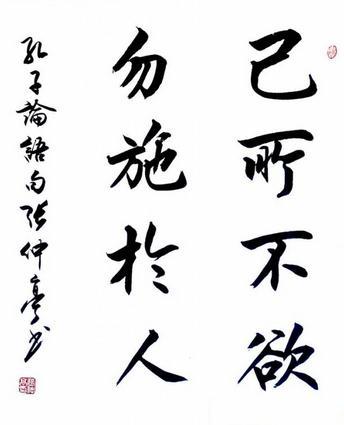 己所不欲
勿施於人
孔子論語句張仲亭书